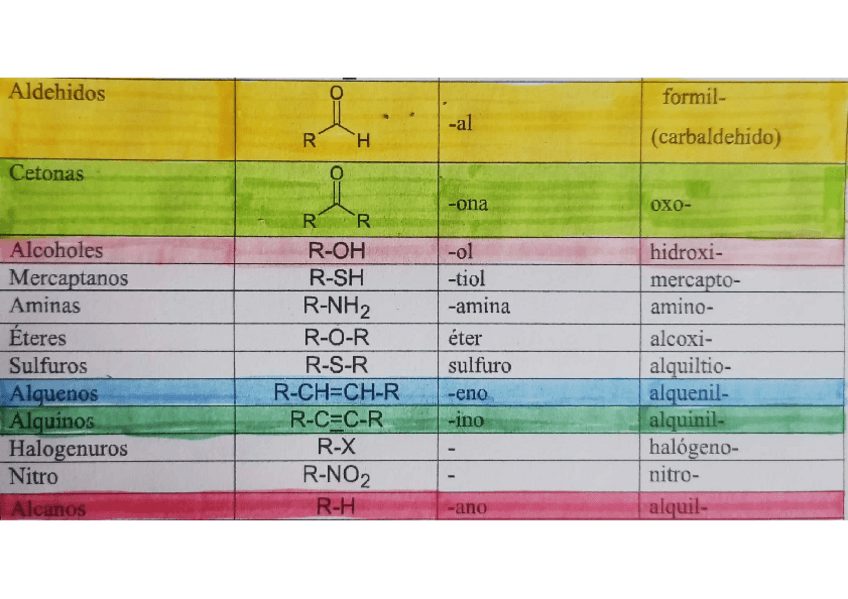 Aldehidos
O
R H
-al
formil-
(carbaldehido)
Cetonas
O
R R
-ona
oxo-
Alcoholes R-OH -ol hidroxi-
Mercaptanos R-SH -tiol mercapto-
Aminas R-NH₂ -amina amino-
Éteres R-O-R éter alcoxi-
Sulfuros R-S-R sulfuro alquiltio-
Alquenos R-CH=CH-R -eno alquenil-
Alquinos R-C≡C-R -ino alquinil-
Halogenuros R-X - halógeno-
Nitro R-NO₂ - nitro-
Alcanos R-H -ano alquil-